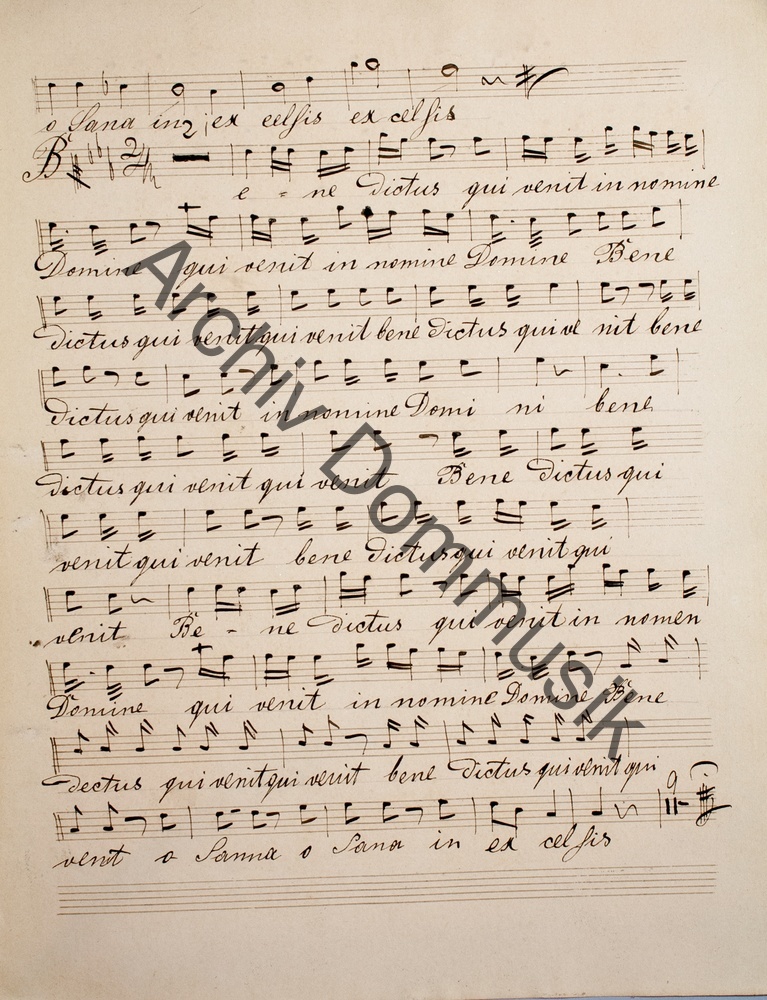 o Sana in ex celsis ex celsis
B e - ne dictus qui venit in nomine
Domine qui venit in nomine Domine Bene
dictus qui venit qui venit bene dictus qui ve nit bene
dictus qui venit in nomine Domi ni bene
dictus qui venit qui venit Bene dictus qui
venit qui venit bene dictus qui venit qui
venit Be - ne dictus qui venit in nomen
Domine qui venit in nomine Domine Bene
dectus qui venit qui venit bene dictus qui venit qui
venit o Sanna o Sana in ex celsis
Archiv Dommusik